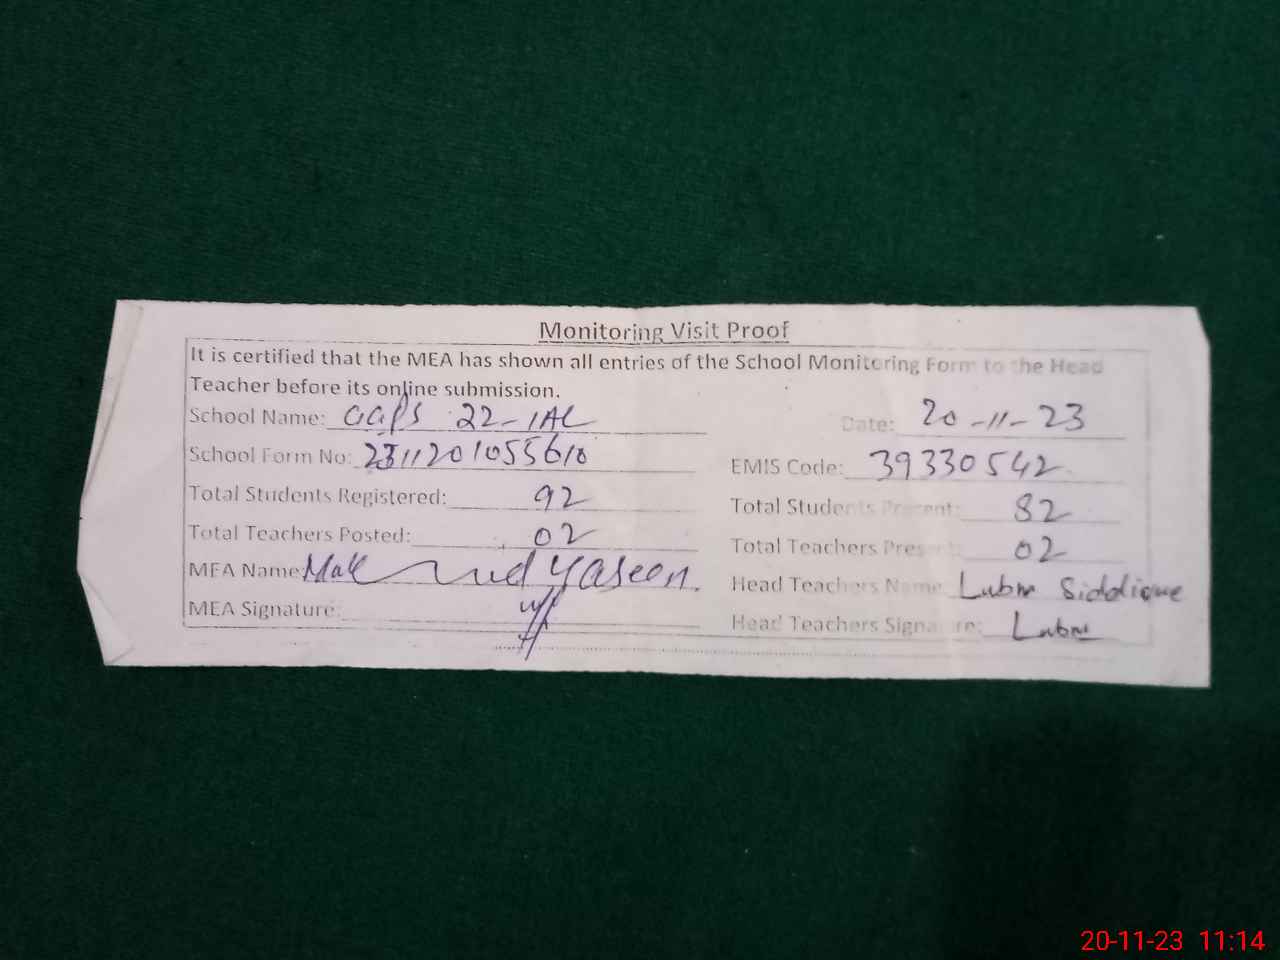 Monitoring Visit Proof
It is certified that the MEA has shown all entries of the School Monitoring Form to the Head
Teacher before its online submission.
School Name: GGPS 22-1AL Date: 20-11-23
School Form No: EMIS Code: 39330542
Total Students Registered: 92 Total Students Present: 82
Total Teachers Posted: 02 Total Teachers Present: 02
MEA Name: Yaseen Head Teachers Name Lubna Siddique
MEA Signature: Head Teachers Signature: Lubna
20-11-23 11:14